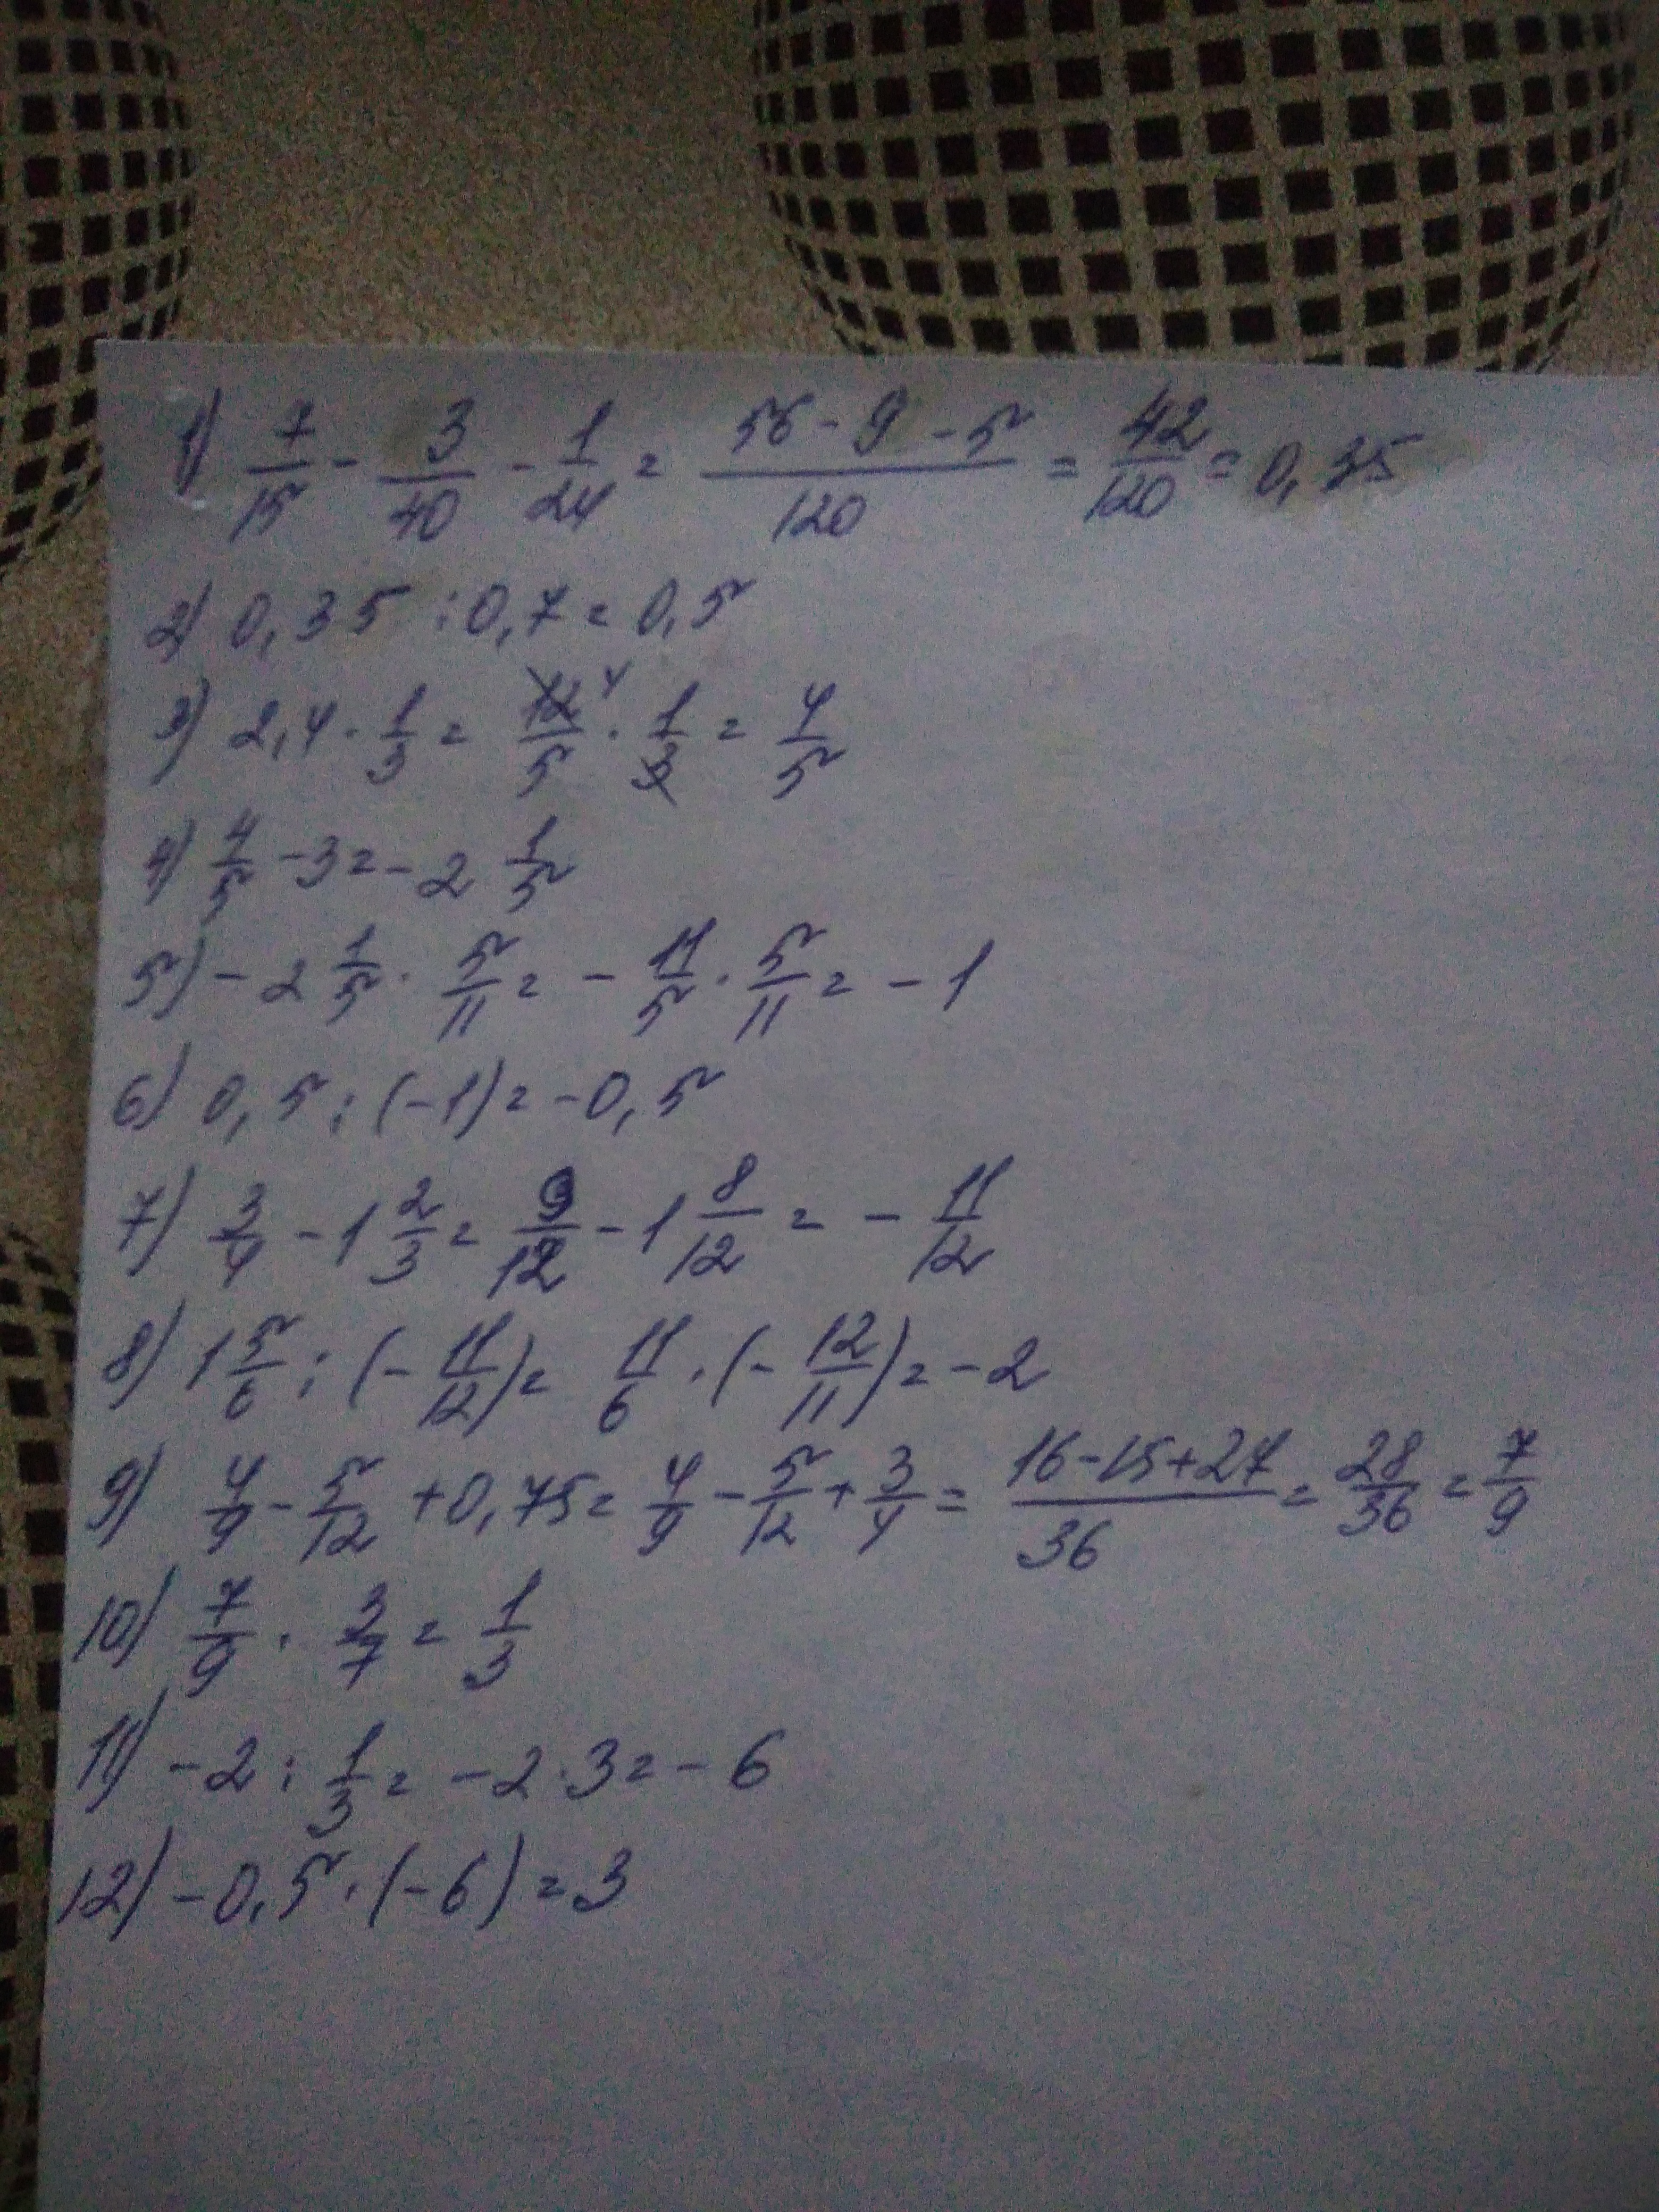 1) 7/15 - 3/40 - 1/24 = (56 - 9 - 5)/120 = 42/120 = 0,35
2) 0,35 : 0,7 = 0,5
3) 2,4 · 1/3 = 12/5 4 · 1/3 = 4/5
4) 4/5 - 3 = - 2 1/5
5) - 2 1/5 · 5/11 = - 11/5 · 5/11 = - 1
6) 0,5 : (-1) = -0,5
7) 3/4 - 1 2/3 = 9/12 - 1 8/12 = - 11/12
8) 1 5/6 : (- 11/12) = 11/6 · (- 12/11) = - 2
9) 4/9 - 5/12 + 0,75 = 4/9 - 5/12 + 3/4 = (16-15+27)/36 = 28/36 = 7/9
10) 7/9 · 3/7 = 1/3
11) -2 : 1/3 = -2 · 3 = - 6
12) -0,5 · (-6) = 3